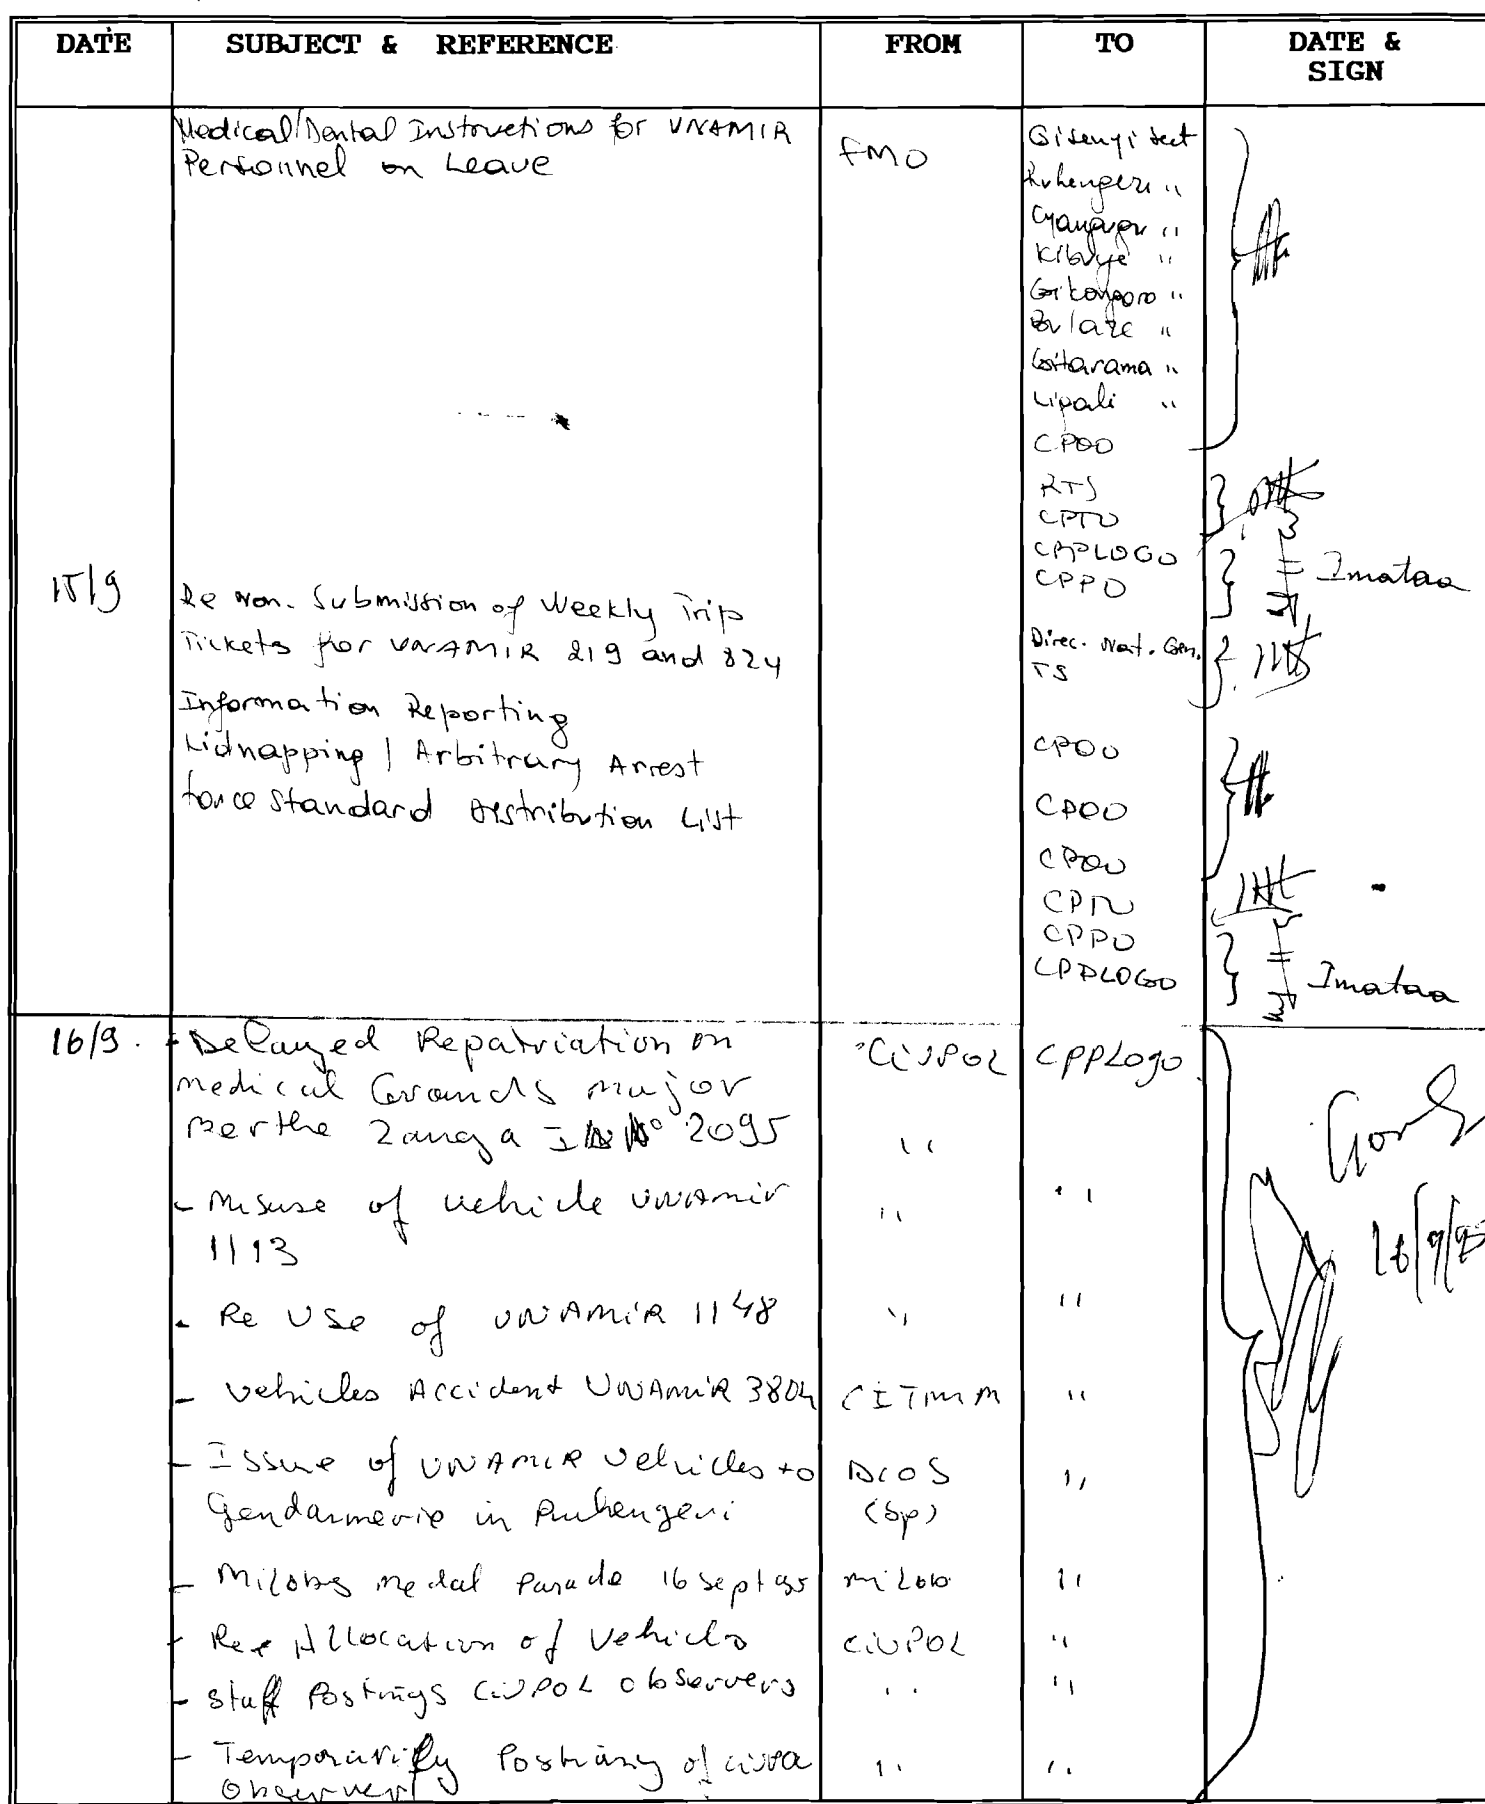 DATE SUBJECT & REFERENCE FROM TO DATE & SIGN
Medical/Dental Instructions for UNAMIR
Personnel on Leave
FMO
Gisenyi sect
Ruhengeri "
Cyangugu "
Kibuye "
Gikongoro "
Butare "
Gitarama "
Kigali "
CPOO
RTS
CPTO
CPPLOGO
CPPO
Imataa
15/9
Re Non. Submission of Weekly Trip
Tickets for UNAMIR 219 and 824
Direc. Nat. Gen.
TS
Information Reporting
CPOO
Kidnapping / Arbitrary Arrest
CPOO
Force Standard Distribution List
CPOO
CPTO
CPPO
CPPLOGO
Imataa
16/9. - Delayed Repatriation on CIVPOL CPPLogo
medical Grounds major
Berthe Zanga 2095 "
- Misuse of vehicle UNAMIR " "
1113
- Re Use of UNAMIR 1148 " "
- Vehicles Accident UNAMIR 3804 CITMM "
- Issue of UNAMIR vehicles to DCOS "
Gendarmerie in Ruhengeri (Sp)
- Milobs medal Parade 16 sept 95 milob "
- Re Allocation of Vehicles CIVPOL "
- Staff Postings CIVPOL observers " "
- Temporarily Posting of " "
Observer
16/9/95